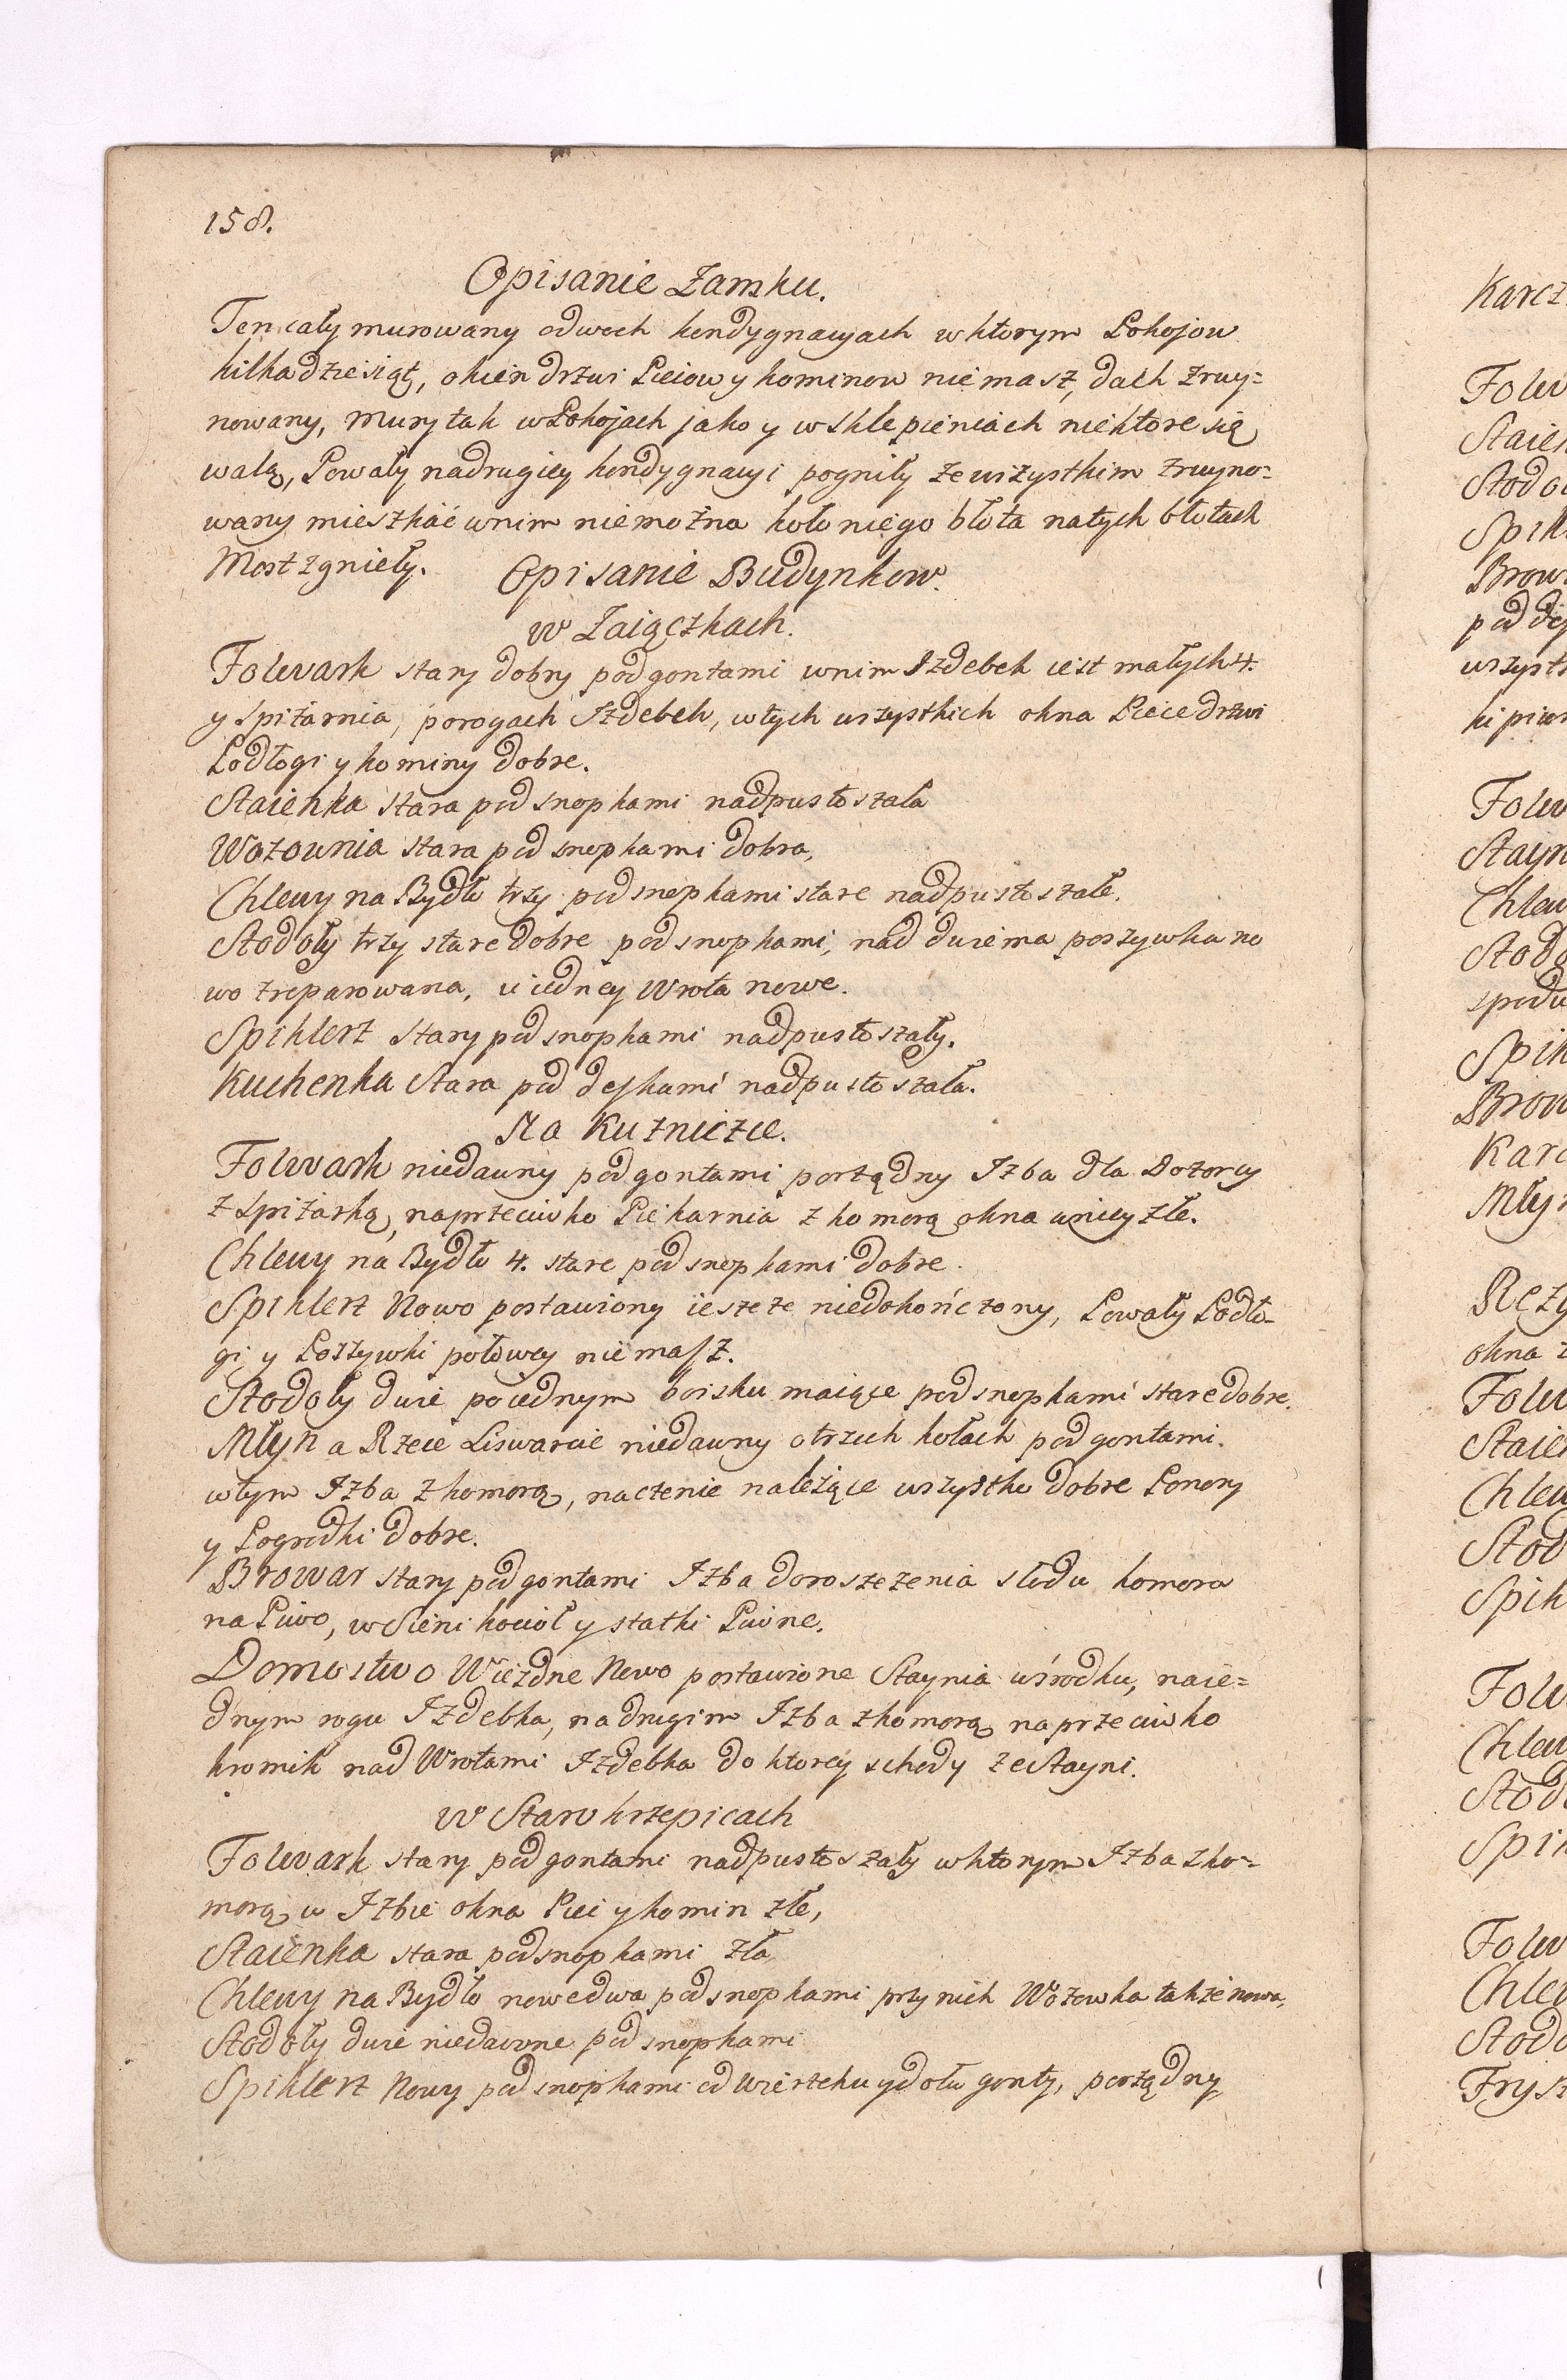 158.
Opisanie Zamku.
Ten cały murowany o dwoch kondygnacyach w ktorym Pokojow
kilkadziesiąt, okien drzwi Pieców y kominow niemasz, dach zruy=
nowany, mury tak w Pokojach jako y w sklepieniach niektore się
walą, Powały na drugiey kondygnacyi pogniły ze wszystkim zruyno=
wany mieszkać w nim nie można koło niego błota na tych błotach
Most zgnieły.
Opisanie Budynkow.
w Zaiączkach.
Folwark stary dobry pod gontami w nim Izdebek iest małych 4.
y spiżarnia, po rogach Izdebek, w tych wszystkich okna Piece drzwi
Podłogi y kominy dobre.
Staienka stara pod snopkami nadpustoszała
Wozownia stara pod snopkami dobra,
Chlewy na Bydło trzy pod snopkami stare nadpustoszałe.
Stodoły trzy stare dobre pod snopkami, nad dwiema poszywka no
wo zreparowana, u iedney Wrota nowe.
Spiklerz stary pod snopkami nadpustoszały.
Kuchenka stara pod deskami nadpustoszała.
Na Kuznicze.
Folwark niedawny pod gontami porządny Izba dla Dozorcy
z spiżarką, naprzeciwko Piekarnia z komorą okna w niey złe.
Chlewy na Bydło 4. stare pod snopkami dobre.
Spiklerz Nowo postawiony ieszcze niedokończony, Powały Podło-
gi y Poszywki połowey niemasz.
Stodoły dwie po iednym boisku maiące pod snopkami stare dobre.
Młyn a Rzece Liswarcie niedawny o trzech kołach pod gontami.
w tym Izba z komorą, naczenie należące wszystko dobre Ponory
y Pogrodki dobre.
Browar stary pod gontami Izba do roszczenia słodu komora
na Piwo, w Sieni kocioł y statki Piwne.
Domostwo Wiezdne Nowo postawione Staynia w środku, na ie=
dnym rogu Izdebka, na drugim Izba z komorą naprzeciwko
kromik nad Wrotami Izdebka do ktorey schody ze Stayni.
w Staro krzepicach
Folwark stary pod gontami nadpustoszały w ktorym Izba z ko=
morą w Izbie okna Piec y komin złe,
Staienka stara pod snopkami zła
Chlewy na Bydło nowe dwa pod snopkami przy nich Wozowka także nowa.
Stodoły dwie niedawne pod snopkami
Spiklerz Nowy pod snopkami od wierzchu y dołu gonty, porządny
Karcz
Folw
Staien
Stodo
Spikl
Brow
pod de
wszystk
ki piw
Folw
Stayn
Chlew
Stodo
spodu
Spik
Brow
Karc
Młyn
Rezy
okna z
Folw
Staien
Chlew
Stod
Spik
Folw
Chlew
Stodo
Spik
Folw
Chlew
Stodo
Frysz